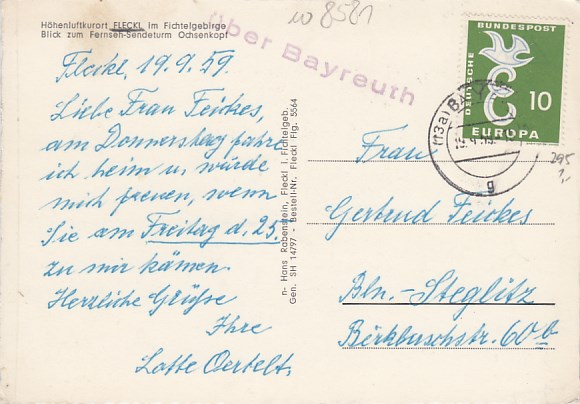 w 8581
Höhenluftkurort FLECKL im Fichtelgebirge
Blick zum Fernseh-Sendeturm Ochsenkopf
über Bayreuth
Fleckl, 19.9.59.
Liebe Frau Feickes,
am Donnerstag fahre
ich heim u. würde
mich freuen, wenn
Sie am Freitag d. 25.
zu mir kämen.
Herzliche Grüße
Ihre
Lotte Oertelt.
n- Hans Rabenstein, Fleckl i. Fichtelgeb.
Gen. SH 14797 - Bestell-Nr. Fleckl Flg. 5564
DEUTSCHE BUNDESPOST
10
EUROPA
(13a) B
g
295
1,-
Frau
Gertrud Feickes
Bln.-Steglitz
Birkbuschstr. 60b